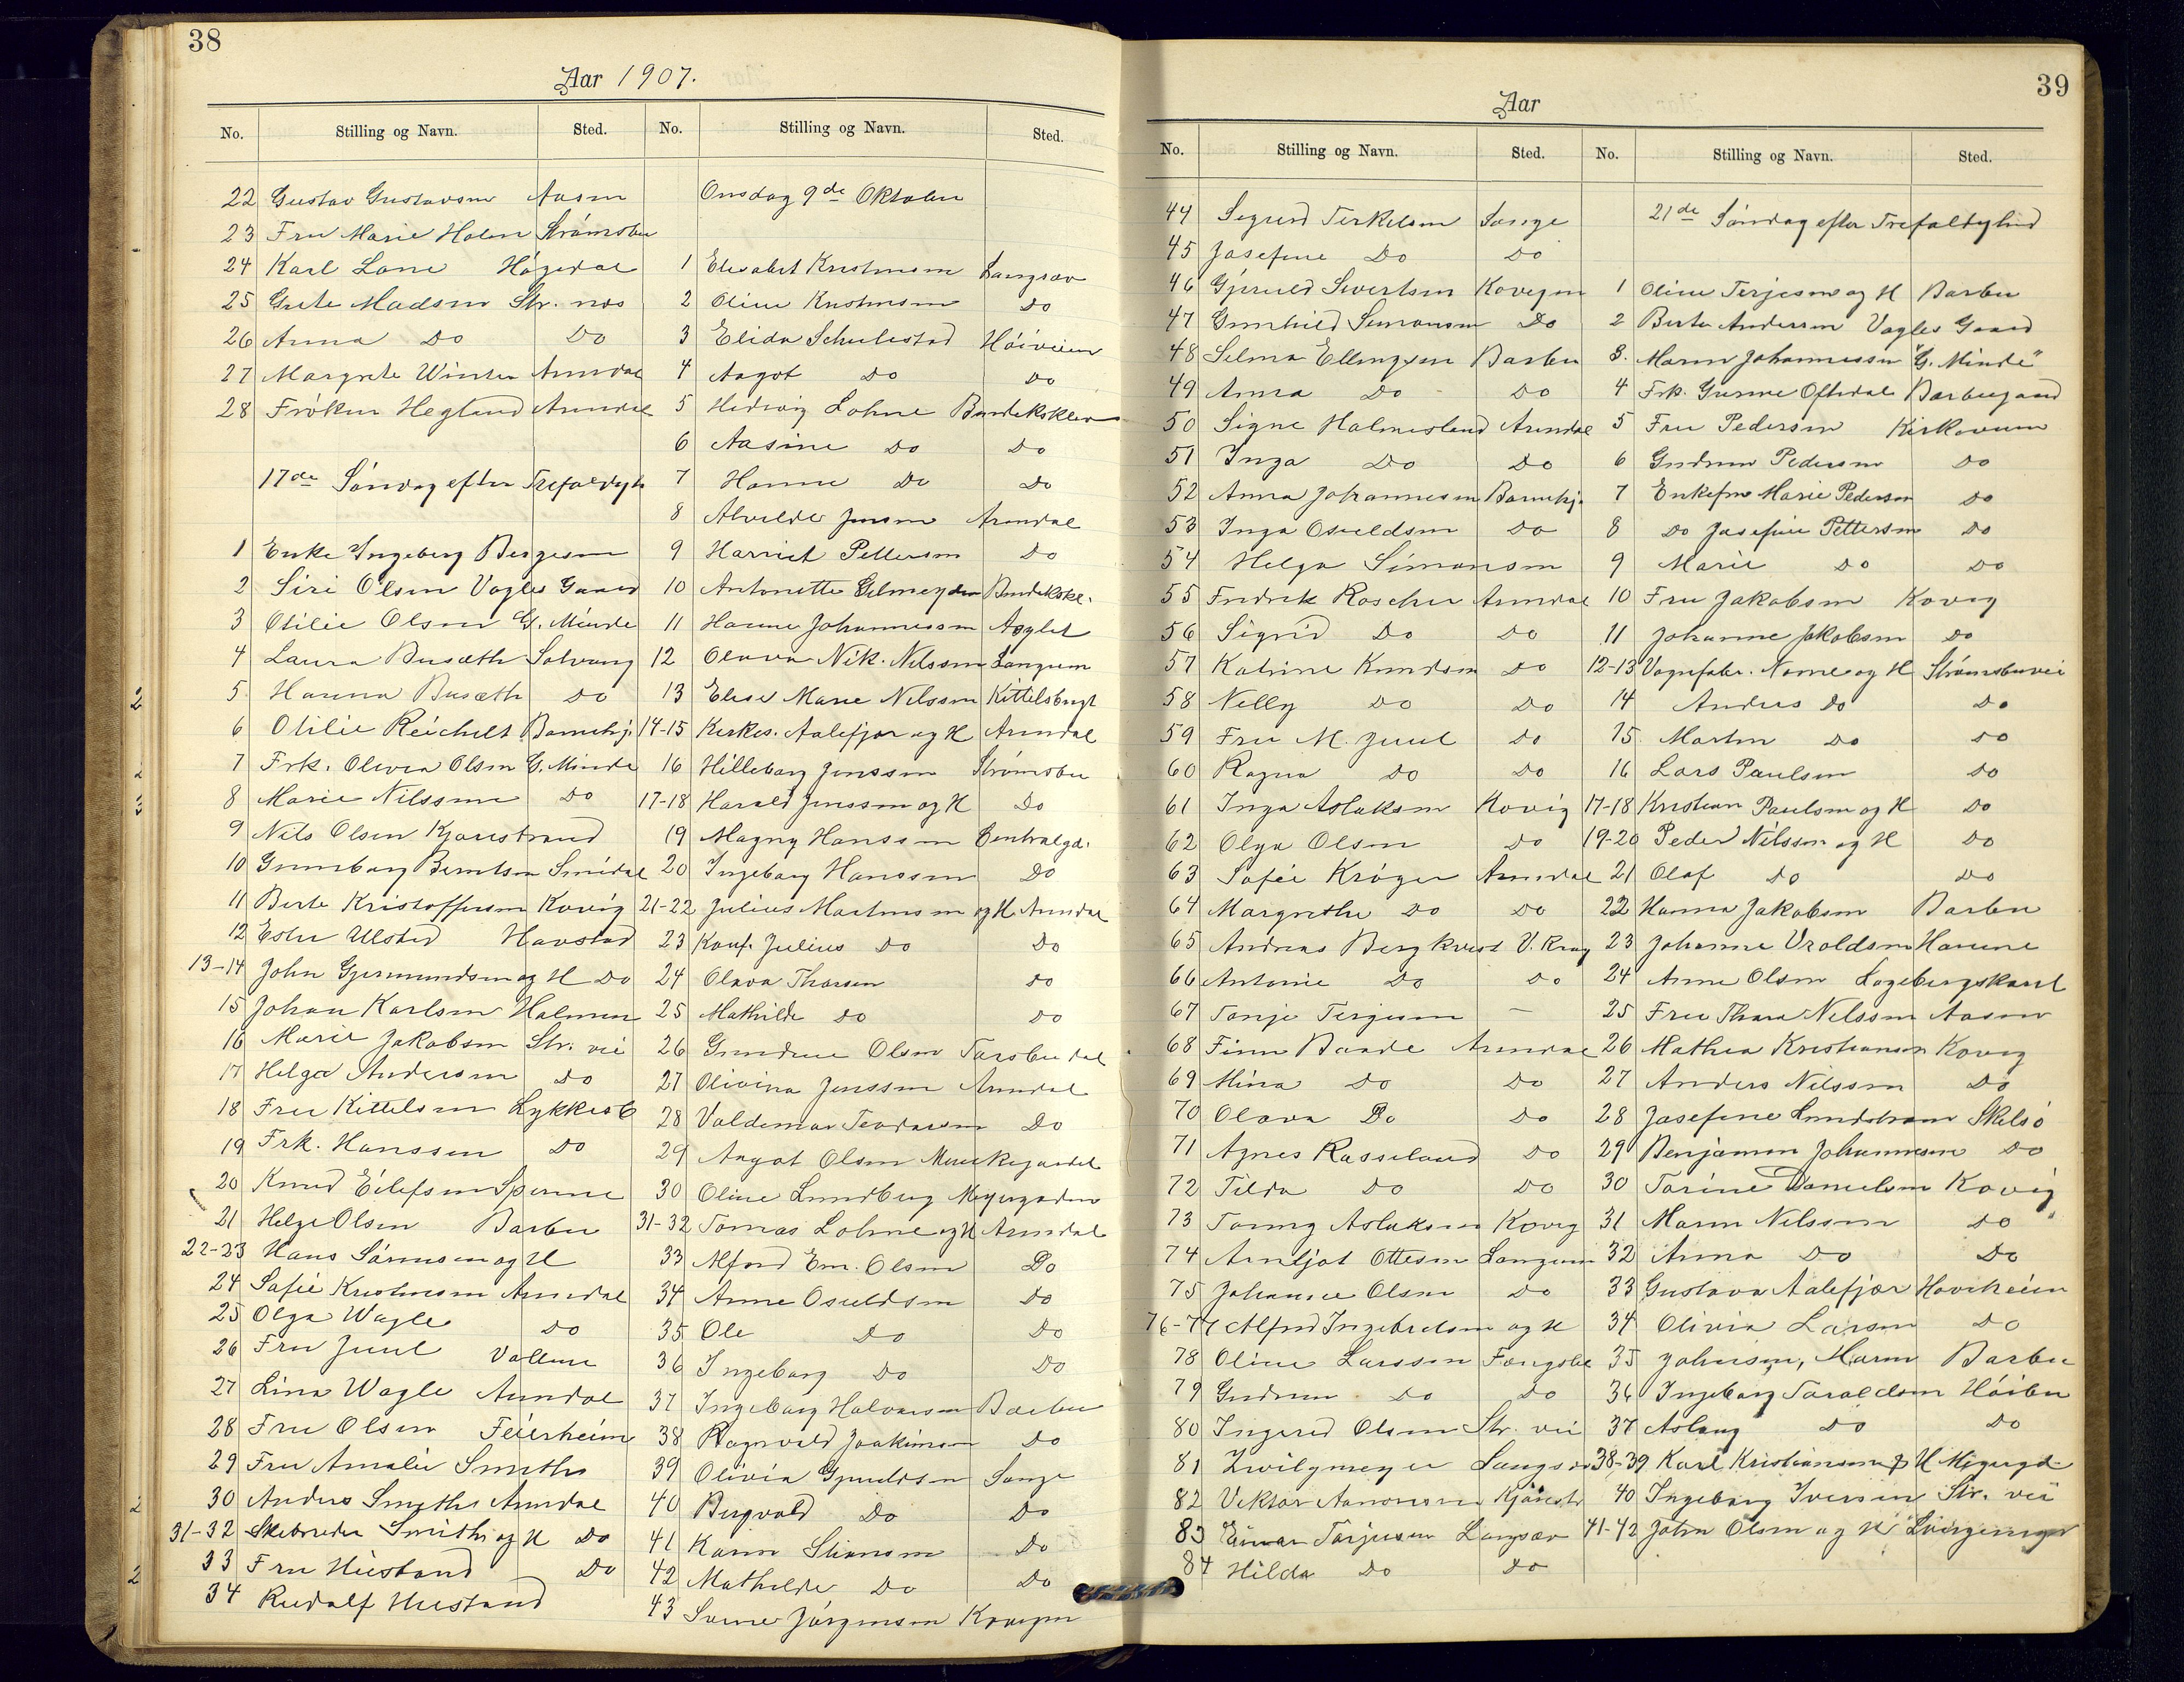 38
Aar 1907.
No. Stilling og Navn. Sted.
22 Gustav Gustavsen Aasen
23 Fru Marie Holm Strømsbu
24 Karl Lone Høgedal
25 Grete Madsen Str. nes
26 Anna Do Do
27 Margrete Winter Arendal
28 Frøken Hegland Arendal
17de Søndag efter Trefoldigh
1 Enke Ingeberg Bergesen
2 Siri Olsen Vogles Gaard
3 Otilie Olsen G. Minde
4 Laura Busæth Solvang
5 Hanna Busæth Do
6 Otilie Reichelt Barnehj.
7 Frk. Olivia Olsen G. Minde
8 Marie Nilssen Do
9 Nils Olsen Kjørrestrand
10 Gunnborg Berntsen Smidal
11 Berte Kristoffersen Kovig
12 Ester Ulsted Havstad
13-14 John Gjermundsen og H Do
15 Johan Karlsen Holmen
16 Marie Jakobsen Str. vei
17 Helga Andersen Do
18 Fru Kittelsen Lykkesb
19 Frk. Hanssen Do
20 Knud Eilefsen Spenne
21 Helge Olsen Barbu
22-23 Hans Sørensen og H
24 Sofie Kristensen Arendal
25 Olga Wagle Do
26 Fru Juul Vollene
27 Lina Wagle Arendal
28 Fru Olsen Feierheim
29 Fru Amalie Smiths
30 Anders Smiths Arendal
31-32 Skibsreder Smith og H Do
33 Fru Hustand Do
34 Rudolf Hustand
No. Stilling og Navn. Sted.
Onsdag 9de Oktober
1 Elisabet Kristensen Langsæv
2 Oline Kristensen Do
3 Elida Schulestad Høiveien
4 Aagot Do Do
5 Hedvig Lohne Bendiksklev
6 Aasine Do Do
7 Hanne Do Do
8 Alvilde Jensen Arendal
9 Harriet Pettersen Do
10 Antonette Bendikskl.
11 Hanne Johannessen Asylet
12 Olava Nik. Nilssen Langsæen
13 Elise Marie Nilssen Kittelsbugt
14-15 Kirkes. Aalefjær og H Arendal
16 Hilleborg Jenssen Strømsbu
17-18 Harald Jenssen og H Do
19 Magny Hanssen Centralgd.
20 Ingeborg Hanssen Do
21-22 Julius Martinsen og H Arendal
23 Konf. Julius Do Do
24 Olava Thorsen Do
25 Mathilde Do Do
26 Gundrue Olsen Torsbudal
27 Olivina Jenssen Arendal
28 Valdemar Teodorsen Do
29 Aagot Olsen Munkegardet
30 Oline Lundberg Meyergaden
31-32 Tomas Lohne og H Arendal
33 Alfred Em. Olsen Do
34 Anne Osuldsen Do
35 Ole Do Do
36 Ingeborg Do Do
37 Ingeborg Halvorsen Barbu
38 Ragnvald Joakimsen Do
39 Olivia Gjeruldsen Songe
40 Bergvald Do Do
41 Karin Stiansen Do
42 Mathilde Do Do
43 Sverre Jørgensen Kovigen
39
Aar
No. Stilling og Navn. Sted.
44 Sigurd Terkelsen Songe
45 Josefine Do Do
46 Gjeruld Sivertsen Kovigen
47 Gunnhild Simonsen Do
48 Selma Ellingsen Barbu
49 Anna Do Do
50 Signe Holmesland Arendal
51 Inga Do Do
52 Anna Johannesen Barnehj
53 Inga Osuldsen Do
54 Helga Simonsen
55 Fredrik Roscher Arendal
56 Sigrid Do Do
57 Katrine Knudsen Do
58 Nelly Do Do
59 Fru M. Juul Do
60 Ragna Do Do
61 Inga Aslaksen Kovig
62 Olga Olsen Do
63 Sofie Krøger Arendal
64 Margrethe Do Do
65 Andreas Bergkvist V. Krog
66 Antonie Do Do
67 Tonje Terjesen —
68 Finn Baade Arendal
69 Mina Do Do
70 Olava Do Do
71 Agnes Rasseland Do
72 Tilda Do Do
73 Tonny Aslaksen Kovig
74 Arnljot Ottesen Langsæen
75 Johanne Olsen Do
76-77 Alfred Ingebretsen og H
78 Oline Larssen Fængslet
79 Gudrun Do Do
80 Ingerid Olsen Str. vei
81 Zwilgmeyer Langsæ
82 Viktor Aanonsen Kjørrestr
83 Einar Torjusen Langsæv
84 Hilda Do Do
No. Stilling og Navn. Sted.
21de Søndag efter Trefoldighed
1 Oline Terjesen og H Barbu
2 Berte Andersen Vogles Gaard
3. Maren Johannessen "G. Minde"
4 Frk. Gunne Oftedal Barbugaard
5 Fru Pedersen Kirkeveien
6 Gudrun Pedersen Do
7 Enkefru Marie Pedersen Do
8 Do Josefine Pettersen Do
9 Marie Do Do
10 Fru Jakobsen Kovig
11 Johanne Jakobsen Do
12-13 Vognfabr. Nome og H Strømsbuvei
14 Anders Do Do
15 Martin Do Do
16 Lars Paulsen Do
17-18 Kristian Paulsen og H Do
19-20 Peder Nilssen og H Do
21 Olaf Do Do
22 Hanna Jakobsen Barbu
23 Johanne Uroldsen Havene
24 Anne Olsen Logebergskaret
25 Fru Thora Nilssen Aasen
26 Mathea Kristiansen Kovig
27 Anders Nilssen Do
28 Josefine Lundstrøm Skilsø
29 Benjamin Johannesen Do
30 Torine Danielsen Kovig
31 Maren Nilssen Do
32 Anna Do Do
33 Gustava Aalefjær Havikeien
34 Olivia Larsen Do
35 Johnsen, Maren Barbu
36 Ingeborg Taraldsen Høibu
37 Aslaug Do Do
38-39 Karl Kristiansen & H Meyergd
40 Ingeborg Iversen Str. vei
41-42 John Olsen og H